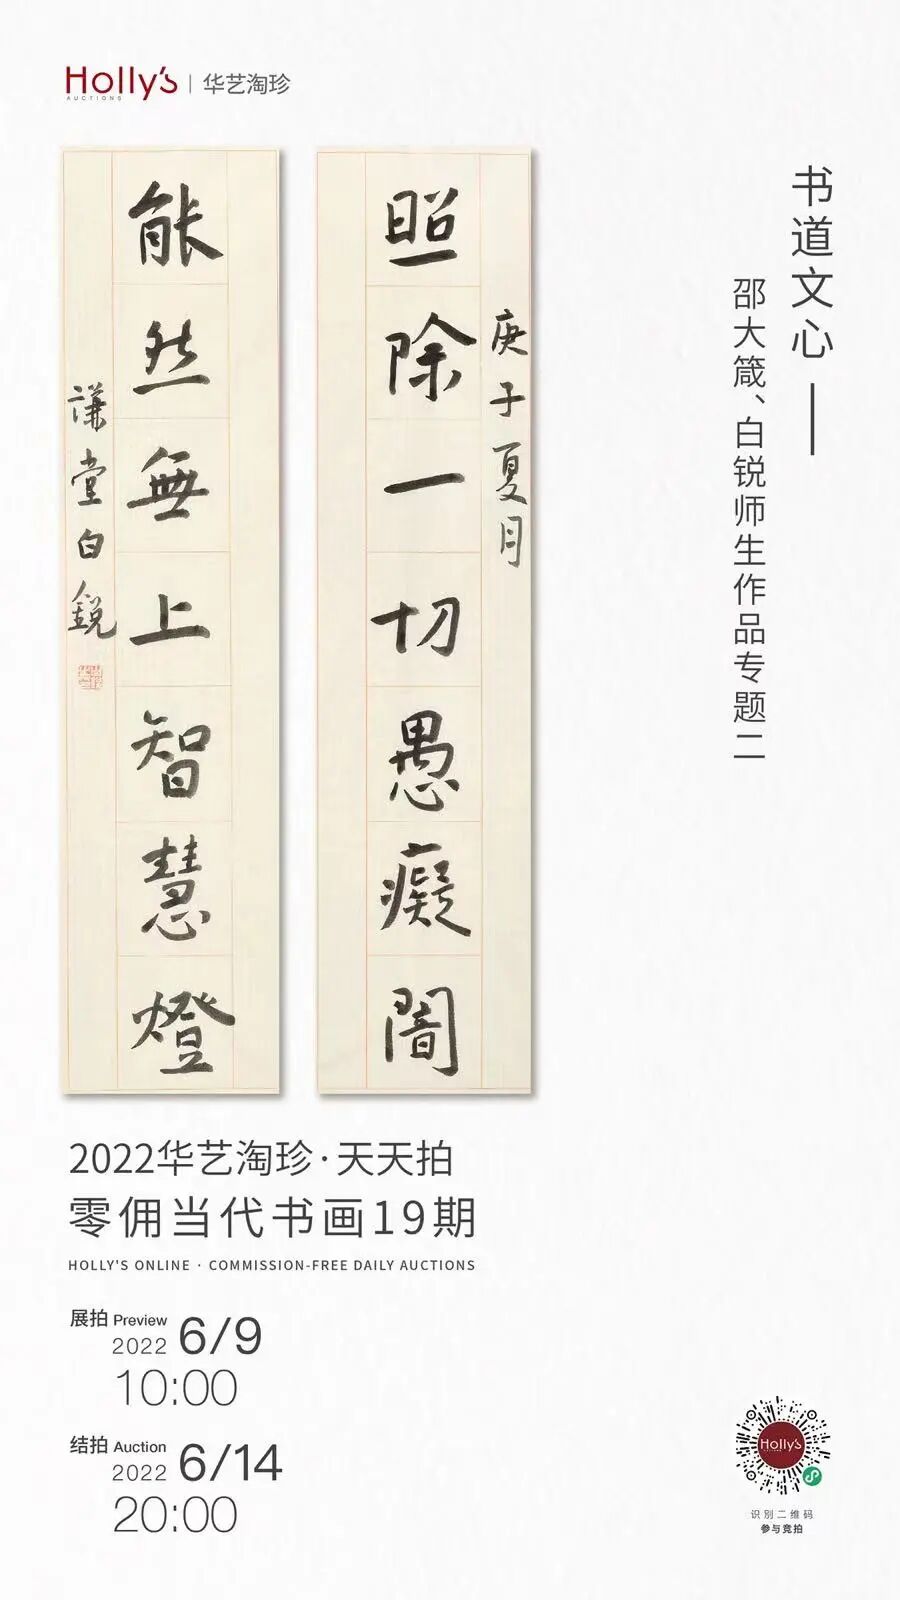 Holly's
AUCTIONS
华艺淘珍
书道文心——
邵大箴、白锐师生作品专题二
庚子夏月
照除一切愚癡闇
能然無上智慧燈
謙堂白銳
2022华艺淘珍·天天拍
零佣当代书画19期
HOLLY'S ONLINE · COMMISSION-FREE DAILY AUCTIONS
展拍 Preview
2022 6/9
10:00
结拍 Auction
2022 6/14
20:00
Holly's
识别二维码
参与竞拍